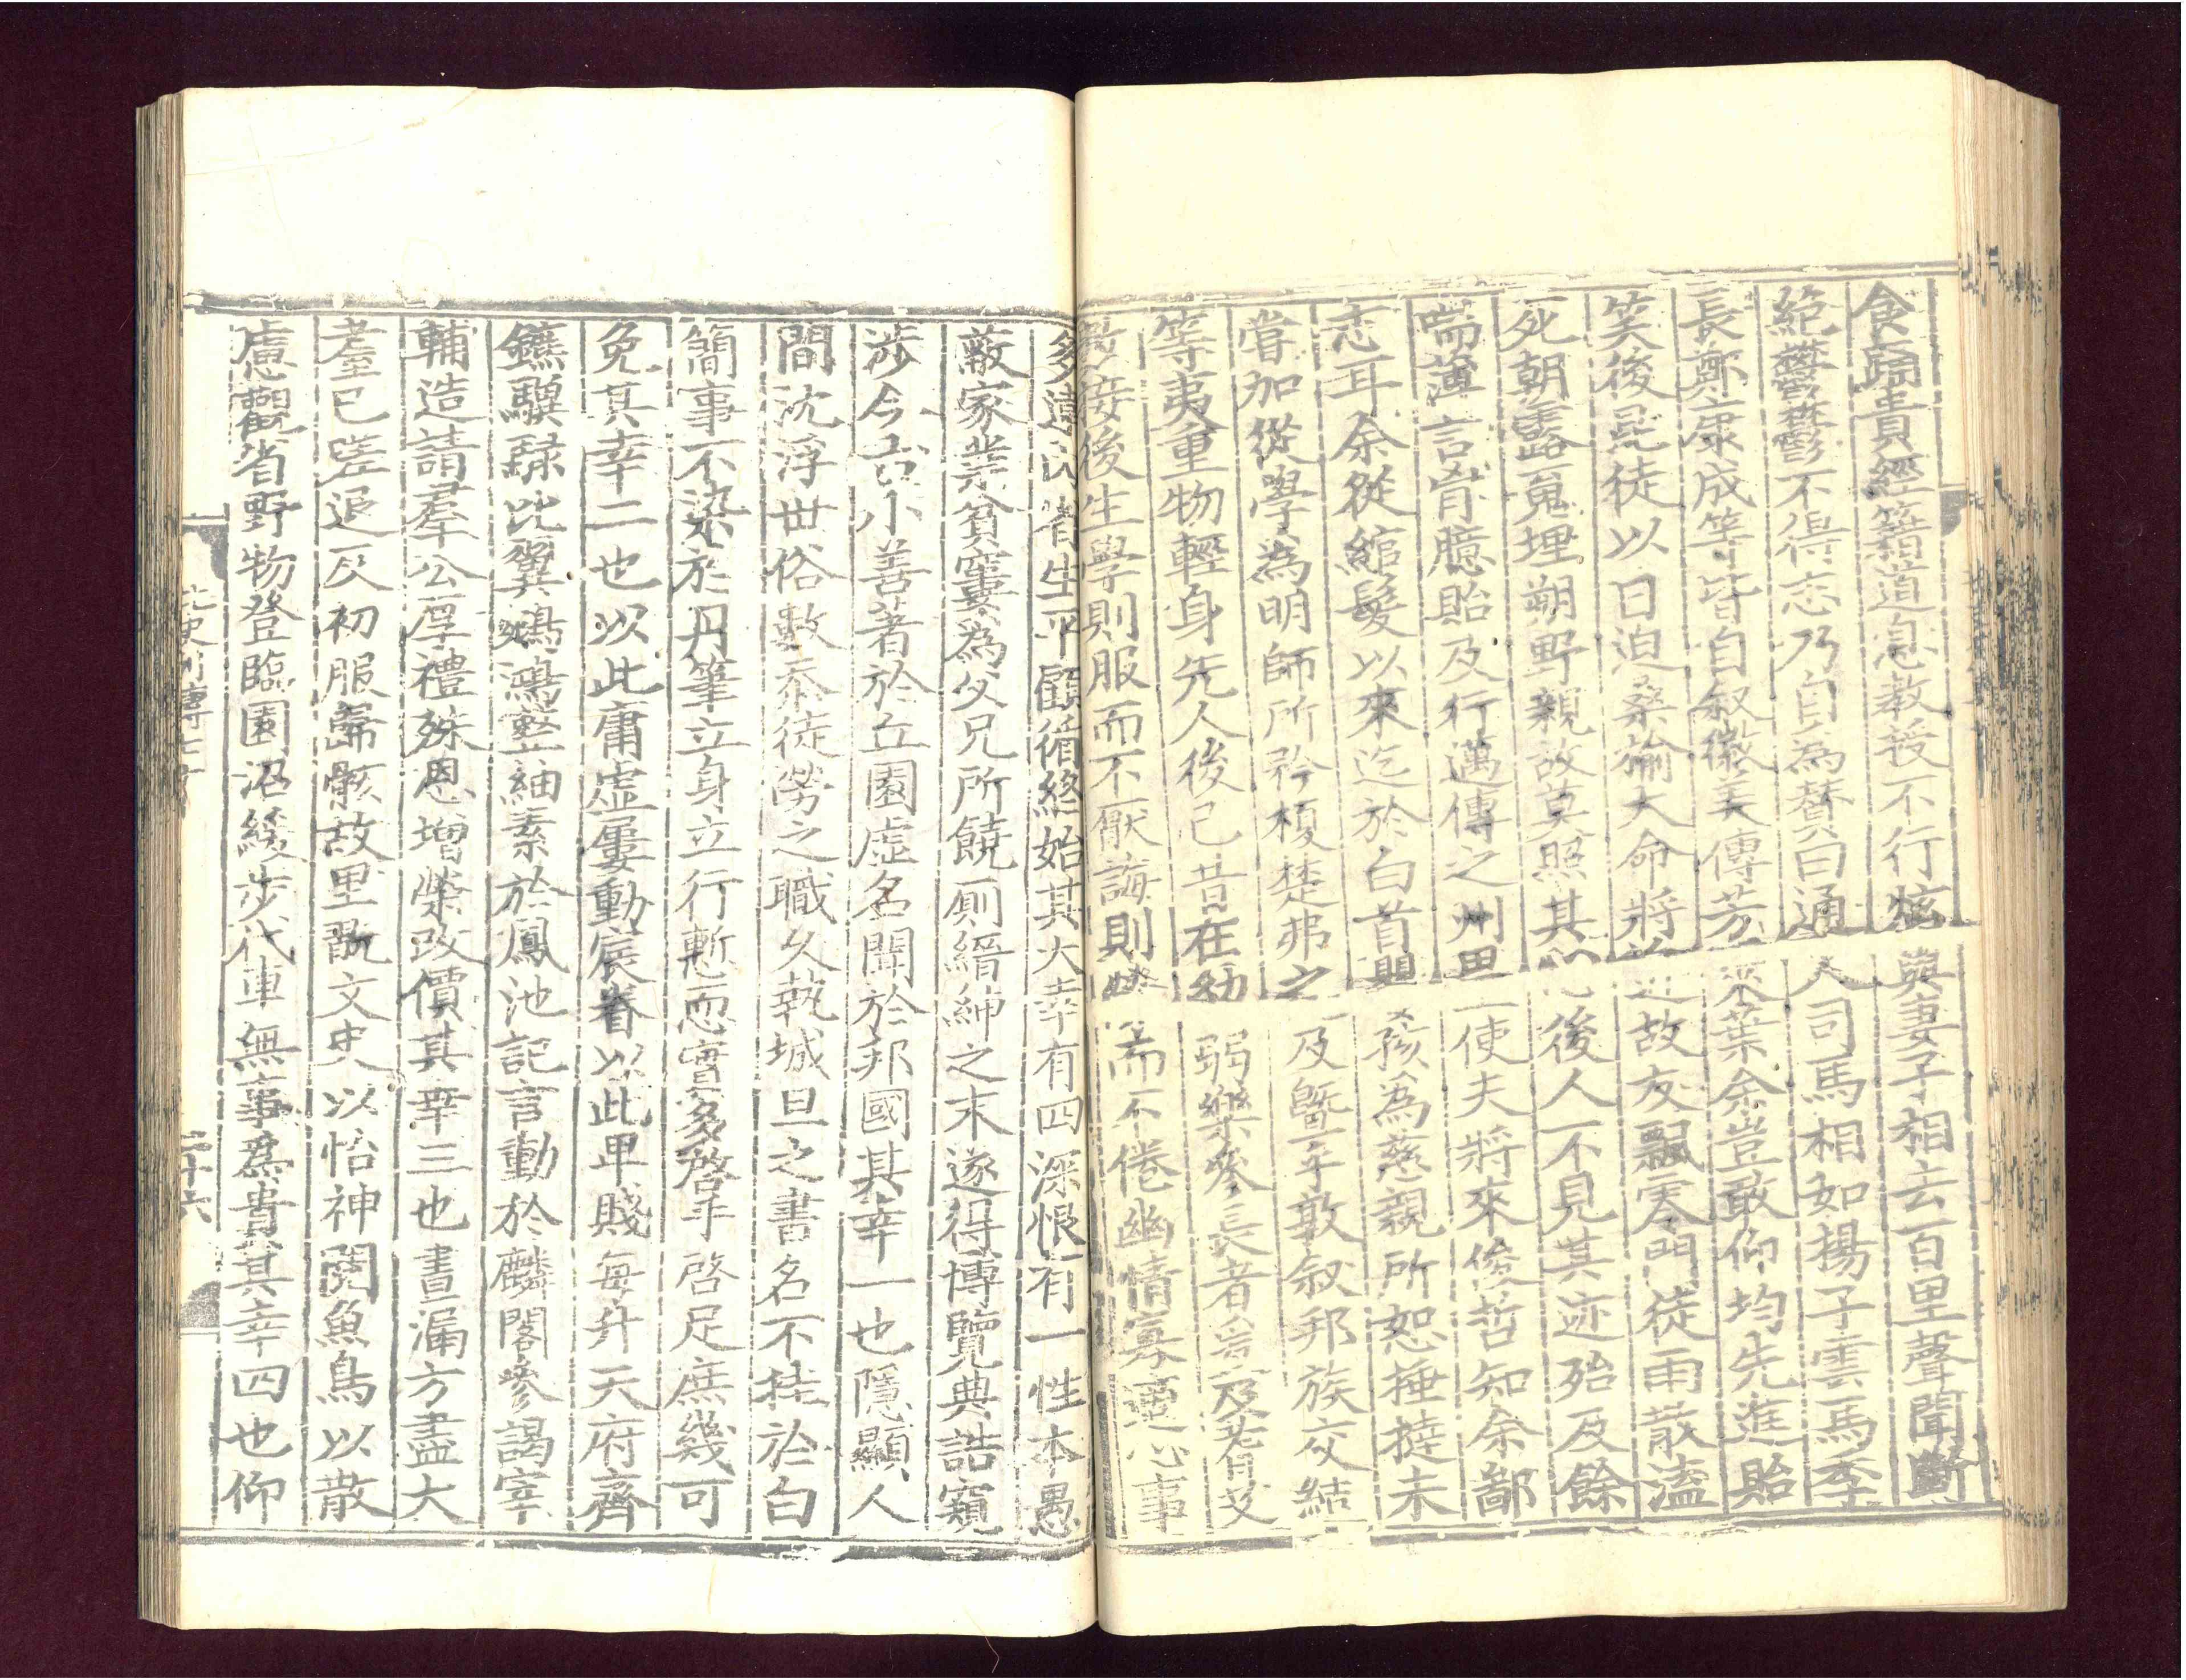 食歸貴經籍道息教授不行炫與妻子相去百里聲聞斷
絶鬱鬱不得志乃自為贊曰通人司馬相如揚子雲馬季
長鄭康成等皆自叙徽美傳芳來葉余豈敢仰均先進貽
笑後昆徒以日迫桑榆大命將近故友飄零門徒雨散溘
死朝露䰟埋朔野親故莫照其心後人不見其迹殆及餘
喘薄言胷臆貽及行邁傳之州里使夫將來俊哲知余鄙
志耳余從綰髮以來迄於白首嬰孩為慈親所恕捶撻未
嘗加從學為明師所矜榎楚弗之及暨乎敦叙邦族交結
等夷重物輕身先人後己昔在幼弱樂參長者爰及耆艾
數接後生學則服而不厭誨則勞而不倦幽情寡適心事
多違內省生平顧循終始其大幸有四深恨有一性本愚
蔽家業貧窶為父兄所饒厠縉紳之末遂得博覽典誥窺
涉今古小善著於丘園虛名聞於邦國其幸一也隱顯人
間沈浮世俗數忝徒勞之職久執城旦之書名不挂於白
簡事不染於丹筆立身立行慙恧實多啓手啓足庶幾可
免其幸二也以此庸虛屢動宸眷以此卑賤每升天府齊
鑣驥騄比翼鵷鴻整緗素於鳳池記言動於麟閣參謁宰
輔造請羣公厚禮殊恩增榮改價其幸三也晝漏方盡大
耋已嗟退反初服歸骸故里翫文史以怡神閱魚鳥以散
慮觀省野物登臨園沼緩步代車無事為貴其幸四也仰
北史列傳七十
二十六